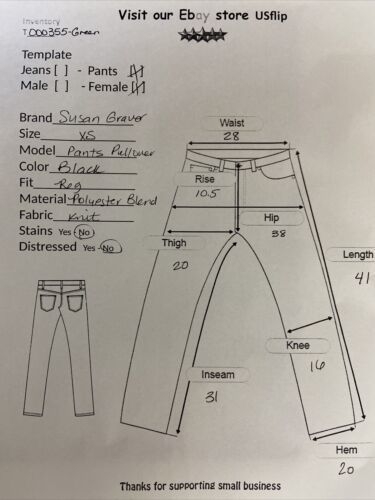 Visit our Ebay store USflip
Inventory
T000355-Green
Template
Jeans [ ] - Pants [✓]
Male [ ] - Female [✓]
Brand Susan Graver
Size XS
Model Pants Pullover
Color Black
Fit Reg
Material Polyester Blend
Fabric Knit
Stains Yes No
Distressed Yes No
Waist
28
Rise
10.5
Hip
38
Thigh
20
Length
41
Knee
16
Inseam
31
Hem
20
Thanks for supporting small business